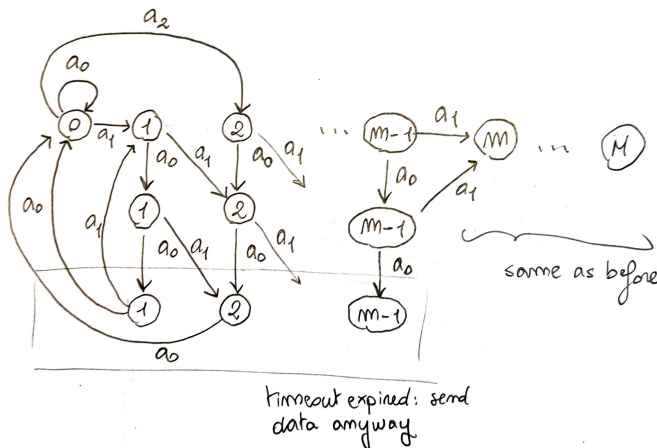 a₂
a₀
0 a₁ 1 2 ... m-1 a₁ m ... M
a₀ a₁ a₀ a₁ a₀ a₁
a₀ a₁ 1 2 m-1
a₀ a₁ a₀ a₁ a₀
same as before
1 2 m-1
a₀
timeout expired: send
data anyway